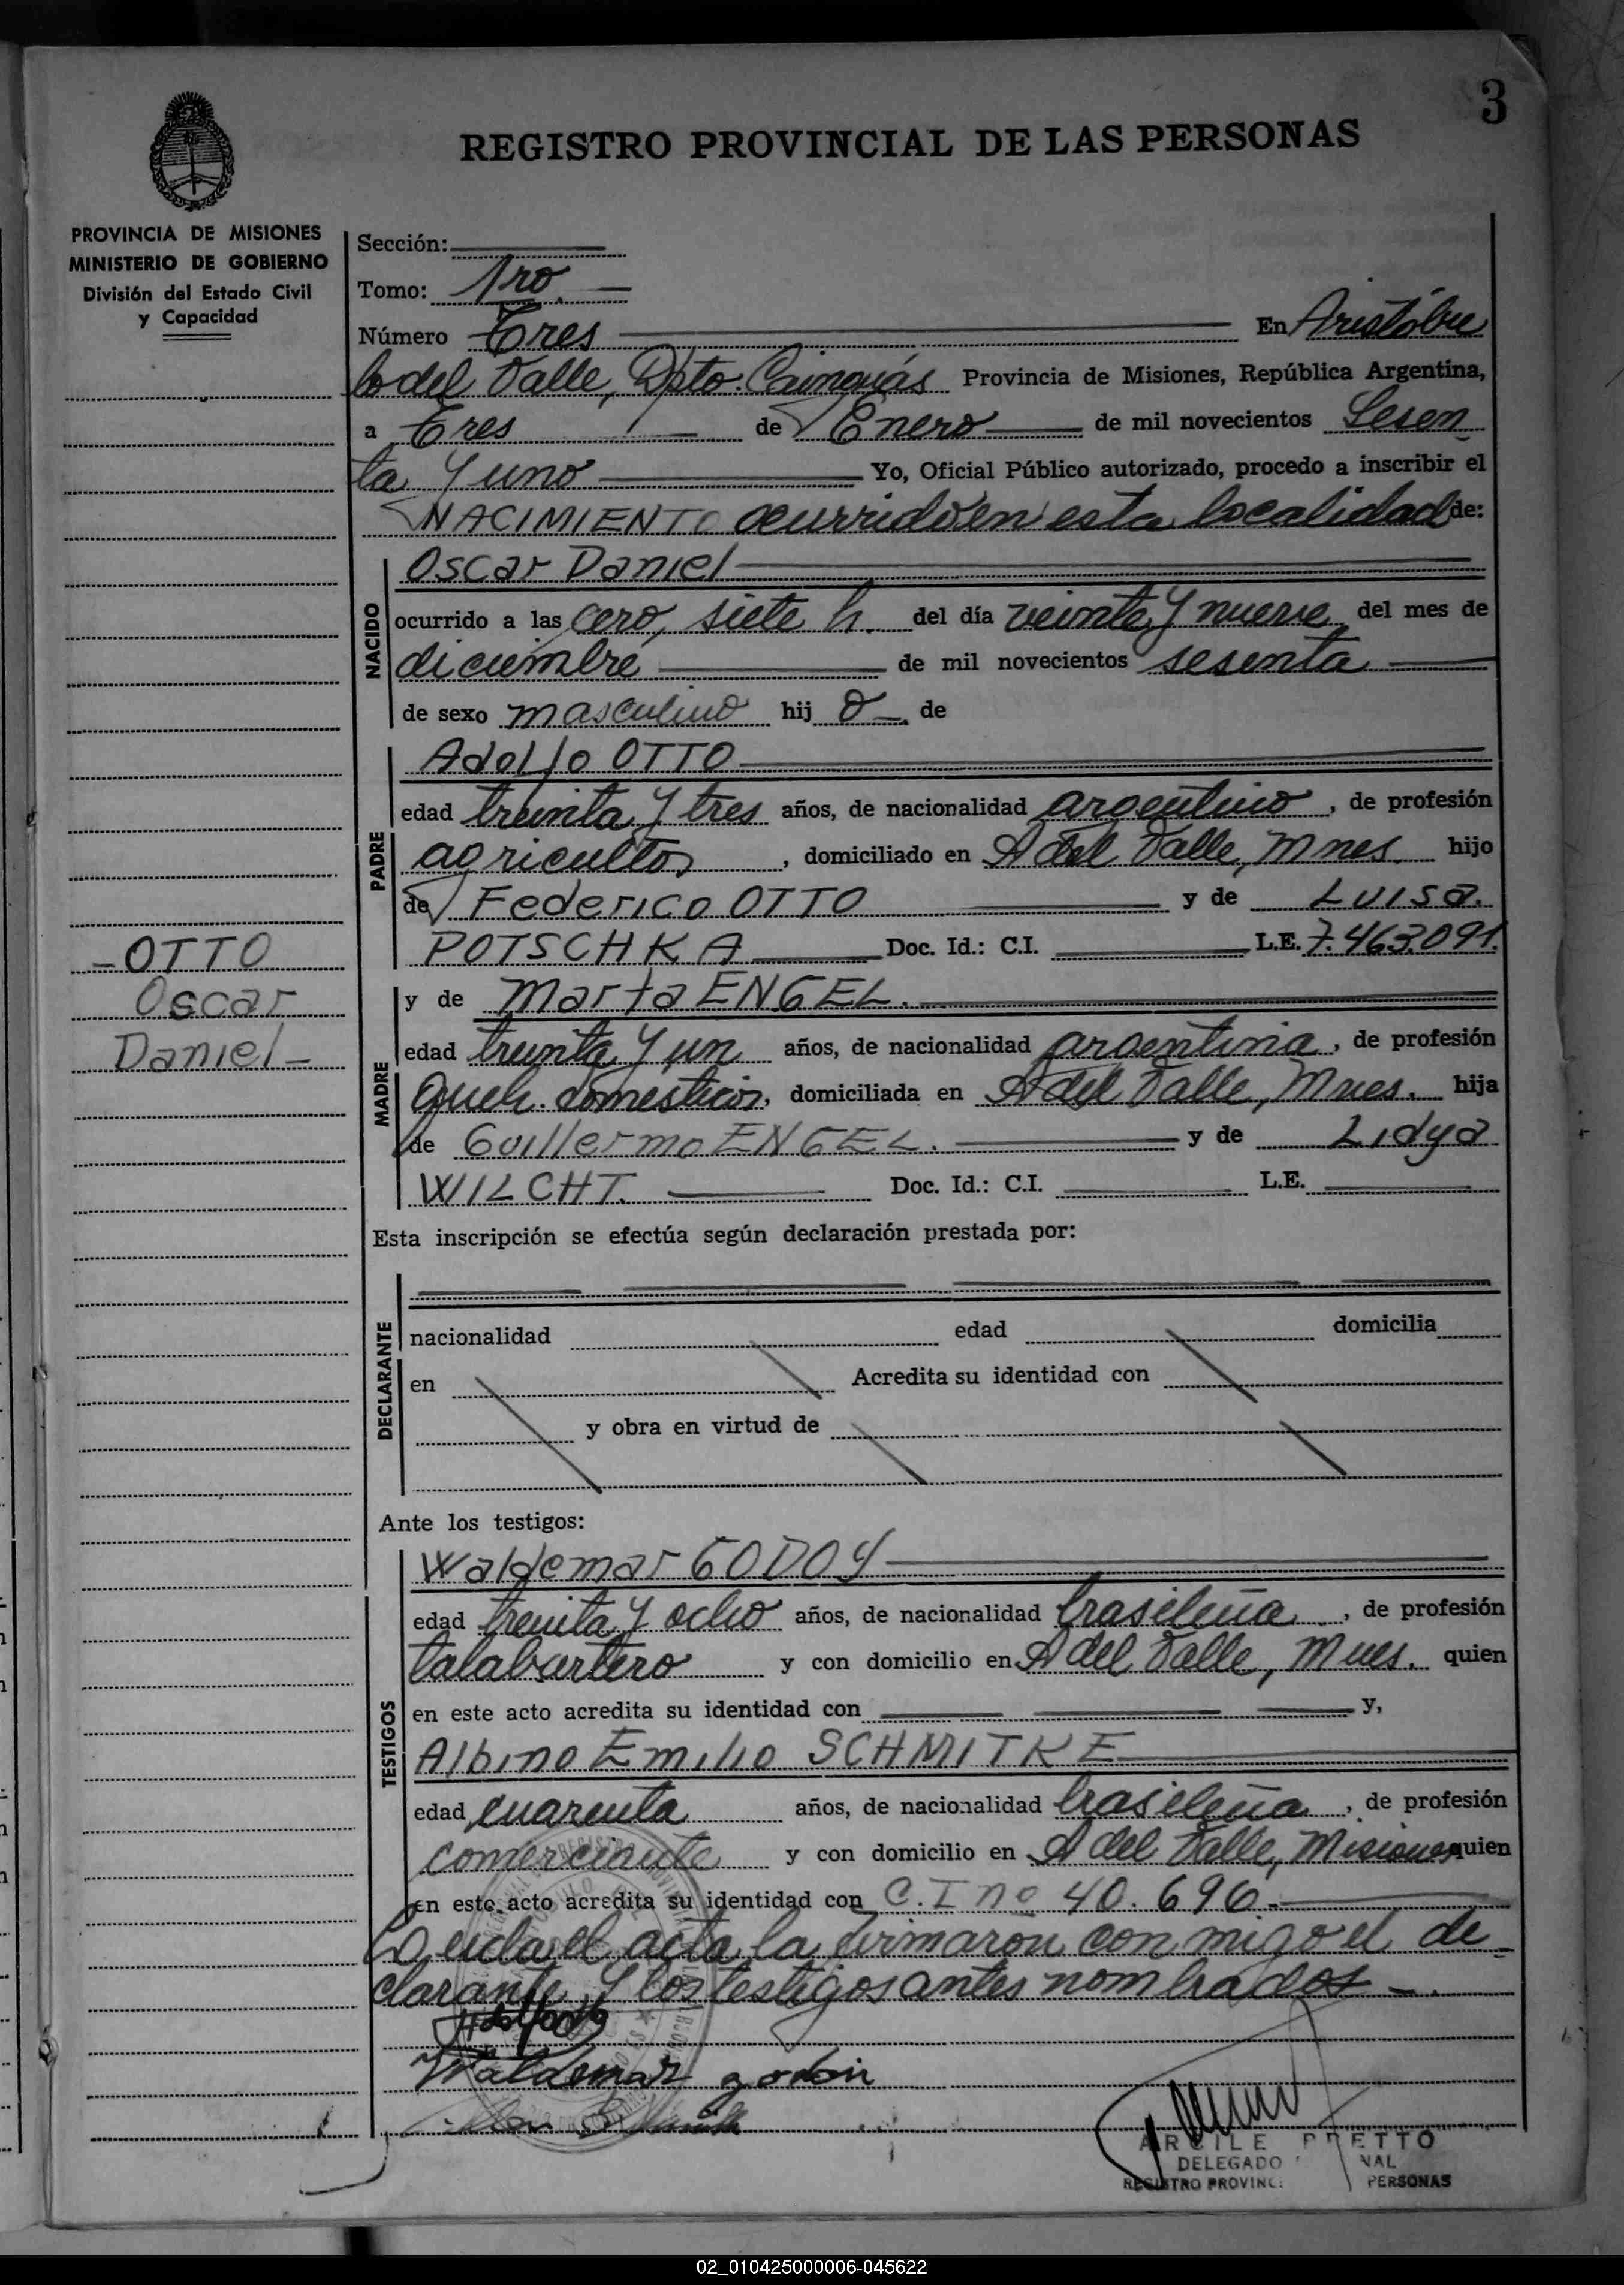 3
REGISTRO PROVINCIAL DE LAS PERSONAS
PROVINCIA DE MISIONES
MINISTERIO DE GOBIERNO
División del Estado Civil
y Capacidad
Sección:
Tomo: 1ro.
Número Tres En Aristóbu
lo del Valle, Dpto. Cainguás Provincia de Misiones, República Argentina,
a Tres de Enero de mil novecientos Sesen
ta y uno Yo, Oficial Público autorizado, procedo a inscribir el
NACIMIENTO ocurrido en esta localidad de:
NACIDO
Oscar Daniel
ocurrido a las cero, siete h. del día veinte y nueve del mes de
diciembre de mil novecientos sesenta
de sexo masculino hij o de
PADRE
Adolfo OTTO
edad treinta y tres años, de nacionalidad argentino, de profesión
agricultor, domiciliado en A del Valle, Mnes. hijo
de Federico OTTO y de Luisa
POTSCHKA Doc. Id.: C.I. L.E. 7.463.091.
- OTTO
Oscar
Daniel -
MADRE
y de Marta ENGEL.
edad treinta y un años, de nacionalidad argentina, de profesión
queh. domesticos, domiciliada en A del Valle, Mnes. hija
de Guillermo ENGEL. y de Lidya
WILCHT. Doc. Id.: C.I. L.E.
Esta inscripción se efectúa según declaración prestada por:
DECLARANTE
nacionalidad edad domicilia
en Acredita su identidad con
y obra en virtud de
Ante los testigos:
TESTIGOS
Waldemar GODOY
edad treinta y ocho años, de nacionalidad brasileña, de profesión
talabartero y con domicilio en A del Valle, Mnes. quien
en este acto acredita su identidad con y,
Albino Emilio SCHMITKE
edad cuarenta años, de nacionalidad brasileña, de profesión
comerciante y con domicilio en A del Valle, Misiones quien
en este acto acredita su identidad con C.I nº 40.696.-
Leida el acta la firmaron con migo el de
clarante y los testigos antes nombrados -.
Waldemar godoi
ARCILE PRETTO
DELEGADO
REGISTRO PROVINC PERSONAS
02_010425000006-045622